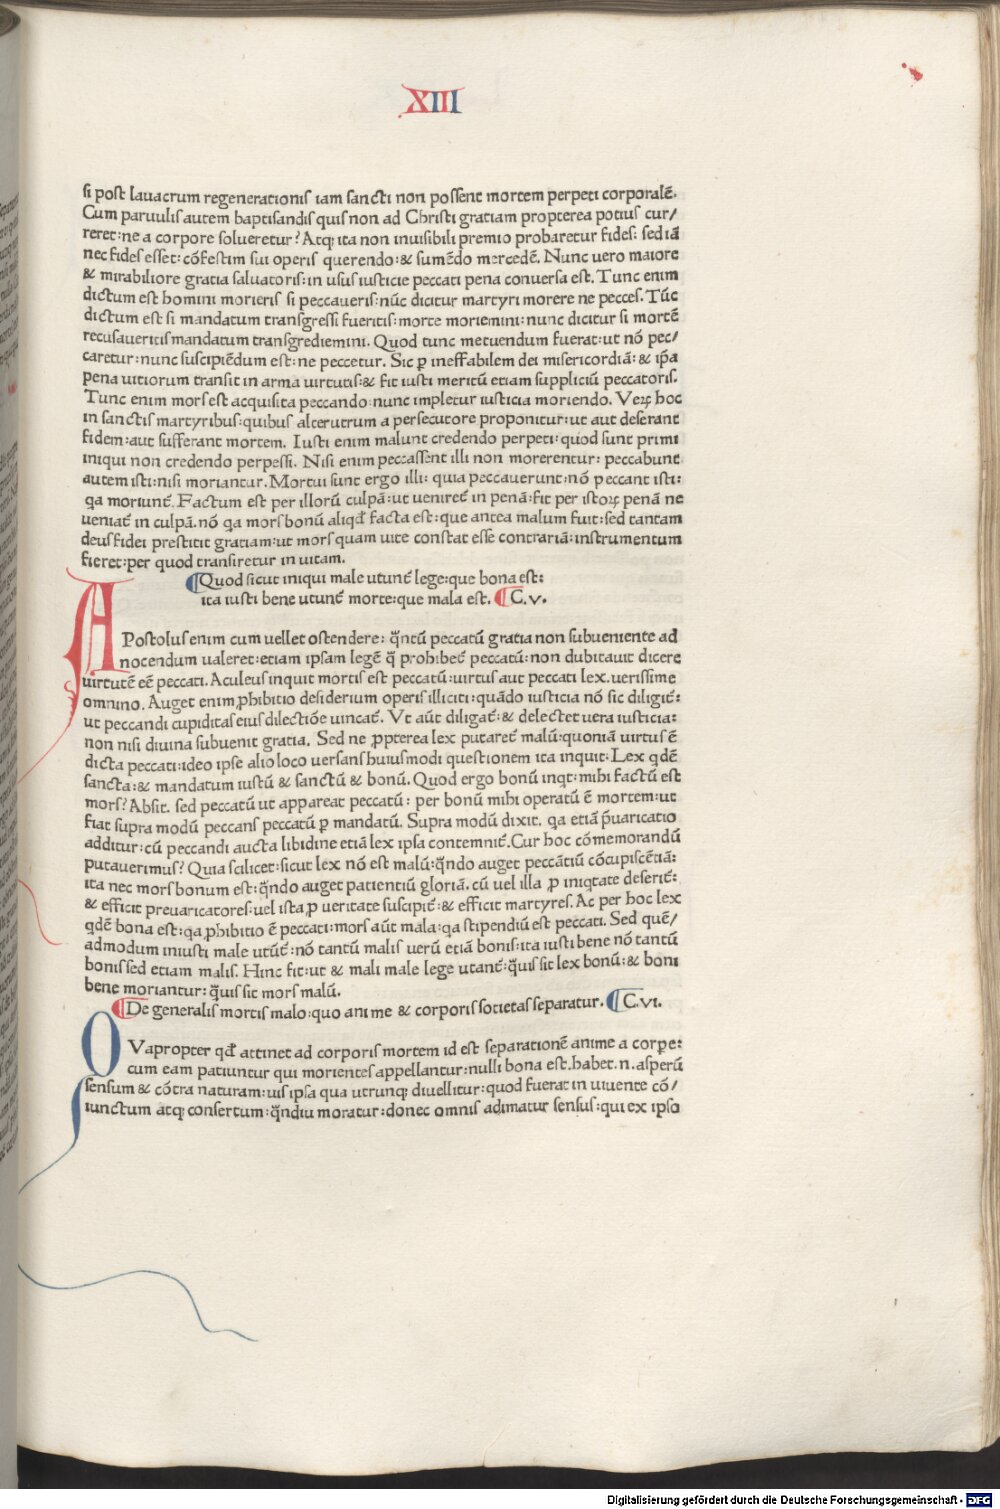 XIII
si post lauacrum regenerationis iam sancti non possent mortem perpeti corporalẽ.
Cum paruulis autem baptisandis quis non ad Christi gratiam propterea potius cur/
reret: ne a corpore solueretur? Atq; ita non inuisibili premio probaretur fides: sed iã
nec fides esset: cõfestim sui operis querendo: & sumẽdo mercedẽ. Nunc uero maiore
& mirabiliore gratia saluatoris: in usus iusticie peccati pena conuersa est. Tunc enim
dictum est homini morieris si peccaueris: nũc dicitur martyri morere ne pecces. Tũc
dictum est si mandatum transgressi fueritis: morte moriemini: nunc dicitur si mortẽ
recusaueritis mandatum transgrediemini. Quod tunc metuendum fuerat: ut nõ pec/
caretur: nunc suscipiẽdum est: ne peccetur. Sic ꝑ ineffabilem dei misericordiã: & ip̃a
pena uitiorum transit in arma uirtutis: & fit iusti meritũ etiam suppliciũ peccatoris.
Tunc enim mors est acquisita peccando: nunc impletur iusticia moriendo. Veꝝ hoc
in sanctis martyribus: quibus alterutrum a persecutore proponitur: ut aut deserant
fidem: aut sufferant mortem. Iusti enim malunt credendo perpeti: quod sunt primi
iniqui non credendo perpessi. Nisi enim peccassent illi non morerentur: peccabunt
autem isti: nisi moriantur. Mortui sunt ergo illi: quia peccauerunt: nõ peccant isti:
q̃a moriunt̃. Factum est per illorũ culpã: ut ueniret̃ in penã: fit per istoꝝ penã ne
ueniat̃ in culpã. nõ q̃a mors bonũ aliqđ facta est: que antea malum fuit: sed tantam
deus fidei prestitit gratiam: ut mors quam uite constat esse contrariã: instrumentum
fieret: per quod transiretur in uitam.
¶ Quod sicut iniqui male utunt̃ lege: que bona est:
ita iusti bene utunt̃ morte: que mala est. ¶ C. v.
APostolus enim cum uellet ostendere: q̃ntũ peccatũ gratia non subueniente ad
nocendum ualeret: etiam ipsam legẽ q̃ prohibet̃ peccatũ: non dubitauit dicere
uirtutẽ eẽ peccati. Aculeus inquit mortis est peccatũ: uirtus aut peccati lex. uerissime
omnino. Auget enim ꝓhibitio desiderium operis illiciti: quãdo iusticia nõ sic diligit̃:
ut peccandi cupiditas eius dilectiõe uincat̃. Vt aũt diligat̃: & delectet uera iusticia:
non nisi diuina subuenit gratia. Sed ne ꝓpterea lex putaret̃ malũ: quoniã uirtus ẽ
dicta peccati: ideo ipse alio loco uersans huiusmodi questionem ita inquit. Lex qdẽ
sancta: & mandatum iustũ & sanctũ & bonũ. Quod ergo bonũ inqt: mihi factũ est
mors? Absit. sed peccatũ ut appareat peccatũ: per bonũ mihi operatũ ẽ mortem: ut
fiat supra modũ peccans peccatũ ꝑ mandatũ. Supra modũ dixit. q̃a etiã p̃uaricatio
additur: cũ peccandi aucta libidine etiã lex ipsa contemnit̃. Cur hoc cõmemorandũ
putauerimus? Quia scilicet: sicut lex nõ est malũ: q̃ndo auget peccãtiũ cõcupiscẽtiã:
ita nec mors bonum est: q̃ndo auget patientiũ gloriã. cũ uel illa ꝑ iniqtate deserit̃:
& efficit preuaricatores: uel ista ꝑ ueritate suscipit̃: & efficit martyres. Ac per hoc lex
qdẽ bona est: q̃a ꝓhibitio ẽ peccati: mors aũt mala: q̃a stipendiũ est peccati. Sed quẽ/
admodum iniusti male utũt̃: nõ tantũ malis uerũ etiã bonis: ita iusti bene nõ tantũ
bonis sed etiam malis. Hinc fit: ut & mali male lege utant̃: q̃uis sit lex bonũ: & boni
bene moriantur: q̃uis sit mors malũ.
¶ De generalis mortis malo: quo anime & corporis societas separatur. ¶ C. vi.
QVapropter qđ attinet ad corporis mortem id est separationẽ anime a corpe:
cum eam patiuntur qui morientes appellantur: nulli bona est. habet .n. asperũ
sensum & cõtra naturam: uis ipsa qua utrunq; diuellitur: quod fuerat in uiuente cõ/
iunctum atq; consertum: q̃ndiu moratur: donec omnis adimatur sensus: qui ex ipso
Digitalisierung gefördert durch die Deutsche Forschungsgemeinschaft - DFG